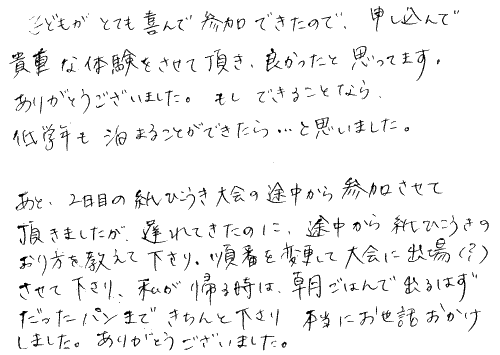 子どもがとても喜んで参加できたので、申し込んで
貴重な体験をさせて頂き、良かったと思ってます。
ありがとうございました。もしできることなら、
低学年も泊まることができたら…と思いました。
あと、2日目の紙ひこうき大会の途中から参加させて
頂きましたが、遅れてきたのに、途中から紙ひこうきの
おり方を教えて下さり、順番を変更して大会に出場(?)
させて下さり、私が帰る時は、朝ごはんで出るはず
だったパンまできちんと下さり 本当にお世話おかけ
しました。ありがとうございました。